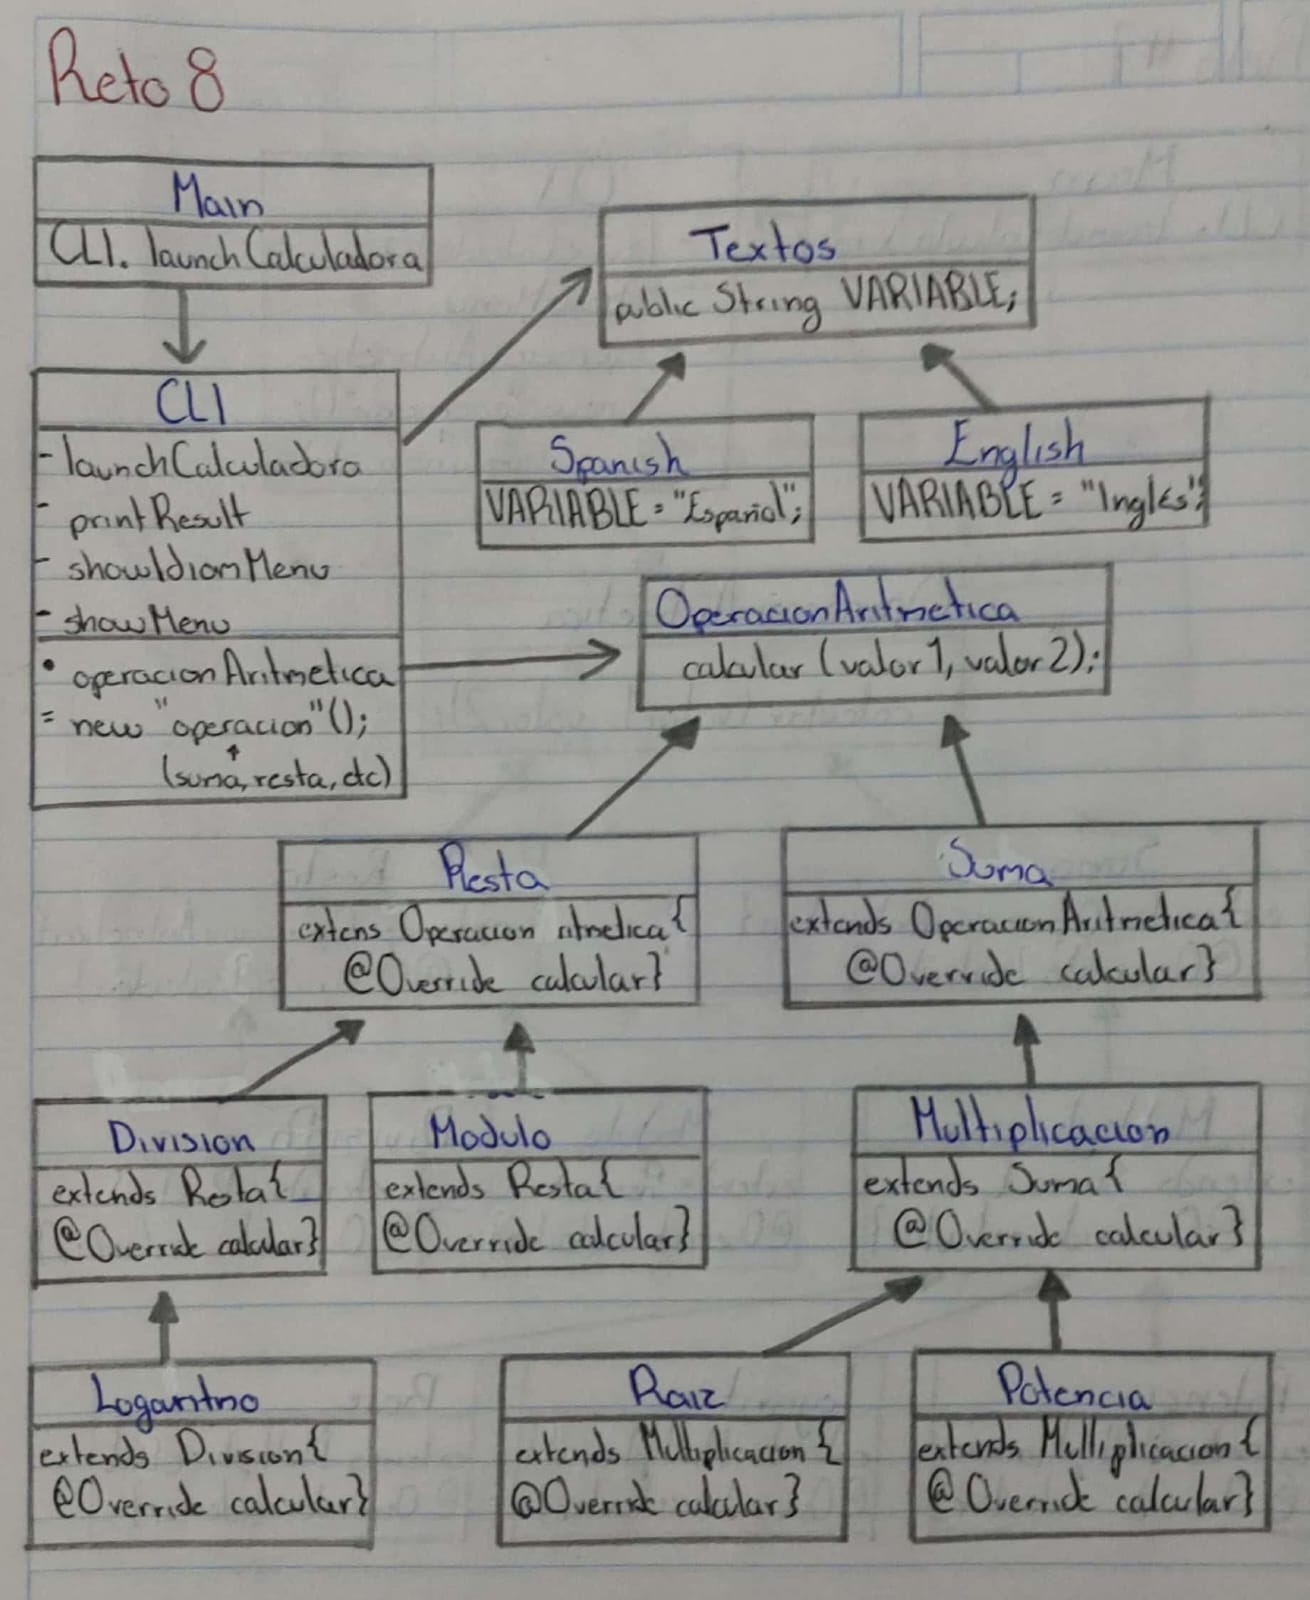 Reto 8
Main
CLI. launchCalculadora
Textos
public String VARIABLE;
CLI
- launchCalculadora
- printResult
- showIdiomMenu
- showMenu
• operacionAritmetica
= new "operacion"();
(suma, resta, etc)
Spanish
VARIABLE = "Español";
English
VARIABLE = "Inglés";
OperacionAritmetica
calcular (valor1, valor2);
Resta
extens Operacion ritmetica {
@Override calcular}
Suma
extends OperacionAritmetica {
@Override calcular}
Division
extends Resta {
@Override calcular}
Modulo
extends Resta {
@Override calcular}
Multiplicacion
extends Suma {
@Override calcular}
Logaritmo
extends Division {
@Override calcular}
Raiz
extends Multiplicacion {
@Override calcular}
Potencia
extends Multiplicacion {
@Override calcular}